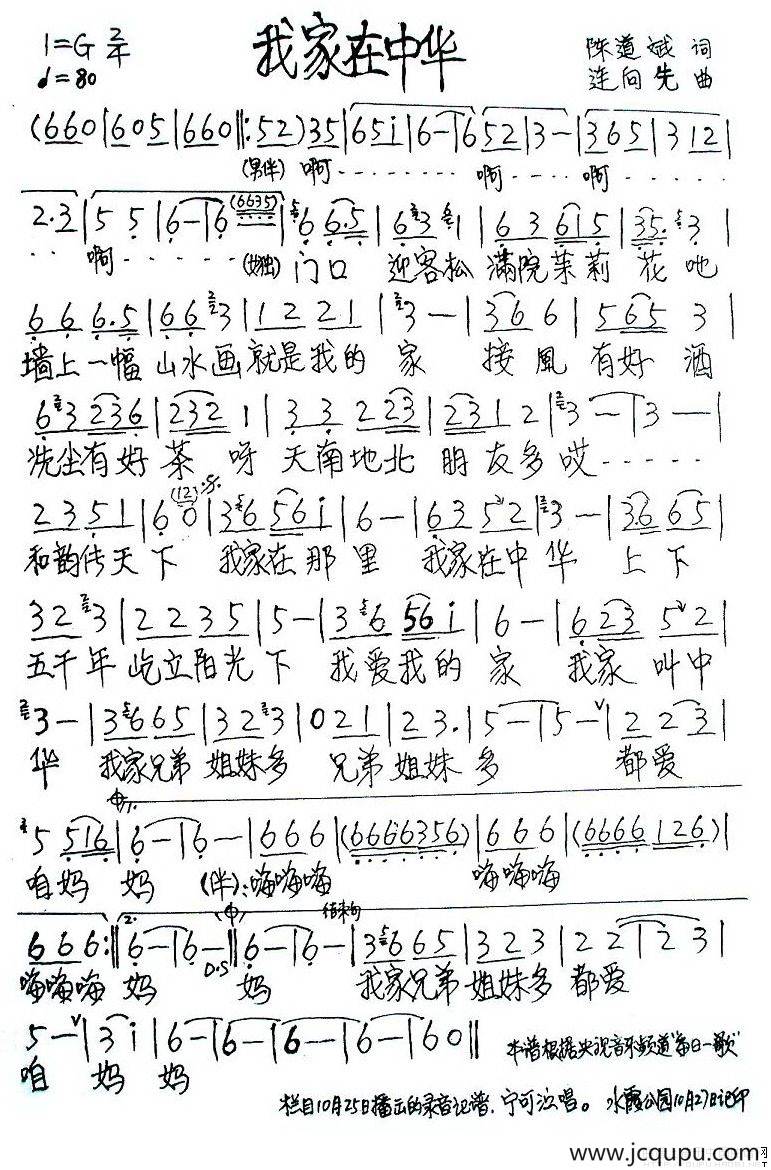 1=G 2/4 我家在中华 陈道斌 词
♩=80 连向先 曲
(660|605|660‖:52)35|65i|6-|652|3-|365|312|
(男伴) 啊........ 啊.... 啊......
2·3|55|6-|6(6635)|66·5|631|63615|35·3|
.. 啊....... (女独) 门口 迎客松 满院茉莉 花吔
666·5|663|1221|3-|366|5653|
墙上一幅 山水画 就是我的 家 接風 有好 酒
63236|2321|33223|2312|3-|3-|
洗尘有好茶 呀 天南地北 朋友多哎......
2351|60|3656i|6-|6352|3-|3665|
和韵传天下 我家在那里 我家在中华 上下
323|2235|5-|3656i|6-|62352|
五千年 屹立阳光下 我爱我的 家 我家 叫中
3-|3665|323|021|23·|5-|5-|223|
华 我家兄弟 姐妹多 兄弟 姐妹 多 都爱
5516|6-|6-|666|(6666356)|666|(6666126)|
咱妈 妈 (伴):嗨嗨嗨 嗨嗨嗨
结束句
666:‖6-|6-‖6-|6-|3665|323|22|23|
D.S
嗨嗨嗨 妈 妈 我家兄弟 姐妹多 都爱
5-|3i|6-|6-|6-|6-|60‖ 本谱根据央视音乐频道"每日一歌"
咱 妈 妈
栏目10月25日播出的录音记谱,宁可注唱。 水霞公园10月27日记印
www.jcqupu.com